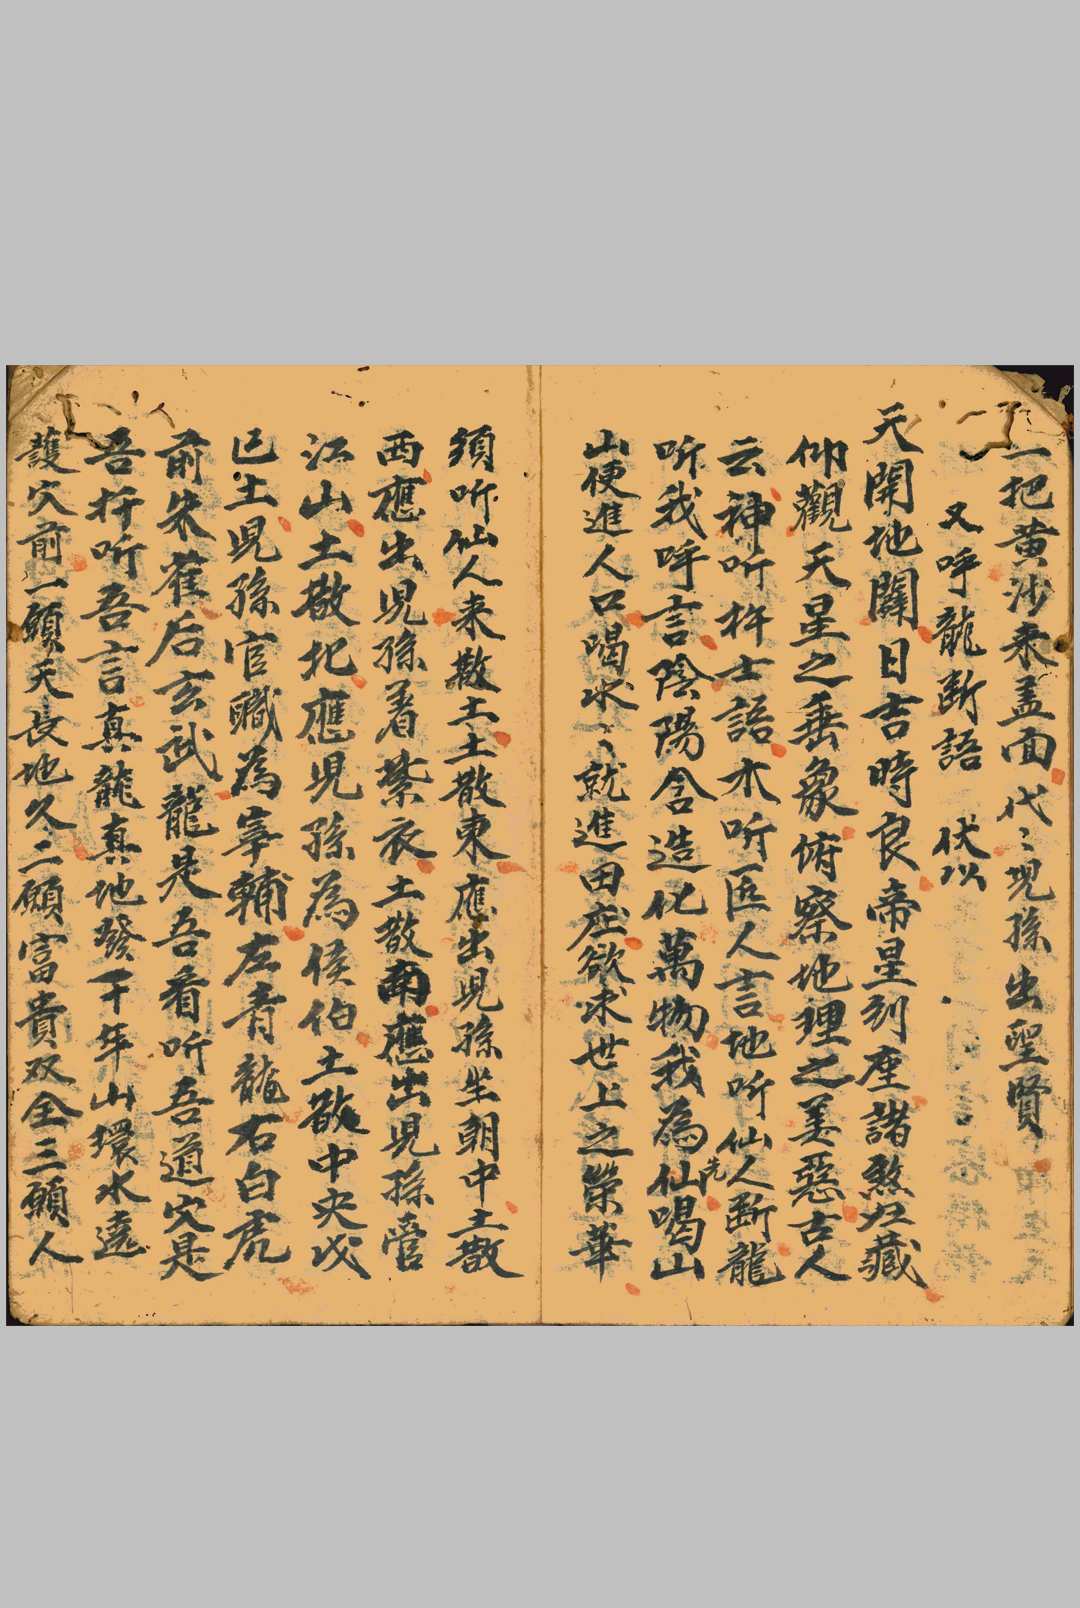 一把黄沙來盖面代〻児孫出聖賢
又呼龍断語　伏以
天開地闢日吉時良帝星到座諸煞收藏
仰觀天星之垂象俯察地理之美惡古人
云神听杵士語木听匠人言地听仙人断龍
听我呼言陰陽含造化萬物我為仙先喝山
山便進人口喝水〻就進田庄欲求世上之榮華
須听仙人来散土土散東應出児孫坐朝中土散
西應出児孫着紫衣土散南應出児孫管
江山土散北應児孫為侯伯土散中央戊
已土児孫官職為宰輔左青龍右白虎
前朱雀后玄武龍是吾看听吾道穴是
吾扦听吾言真龍真地發千年山環水遶
護穴前一願天長地久二願富貴双全三願人